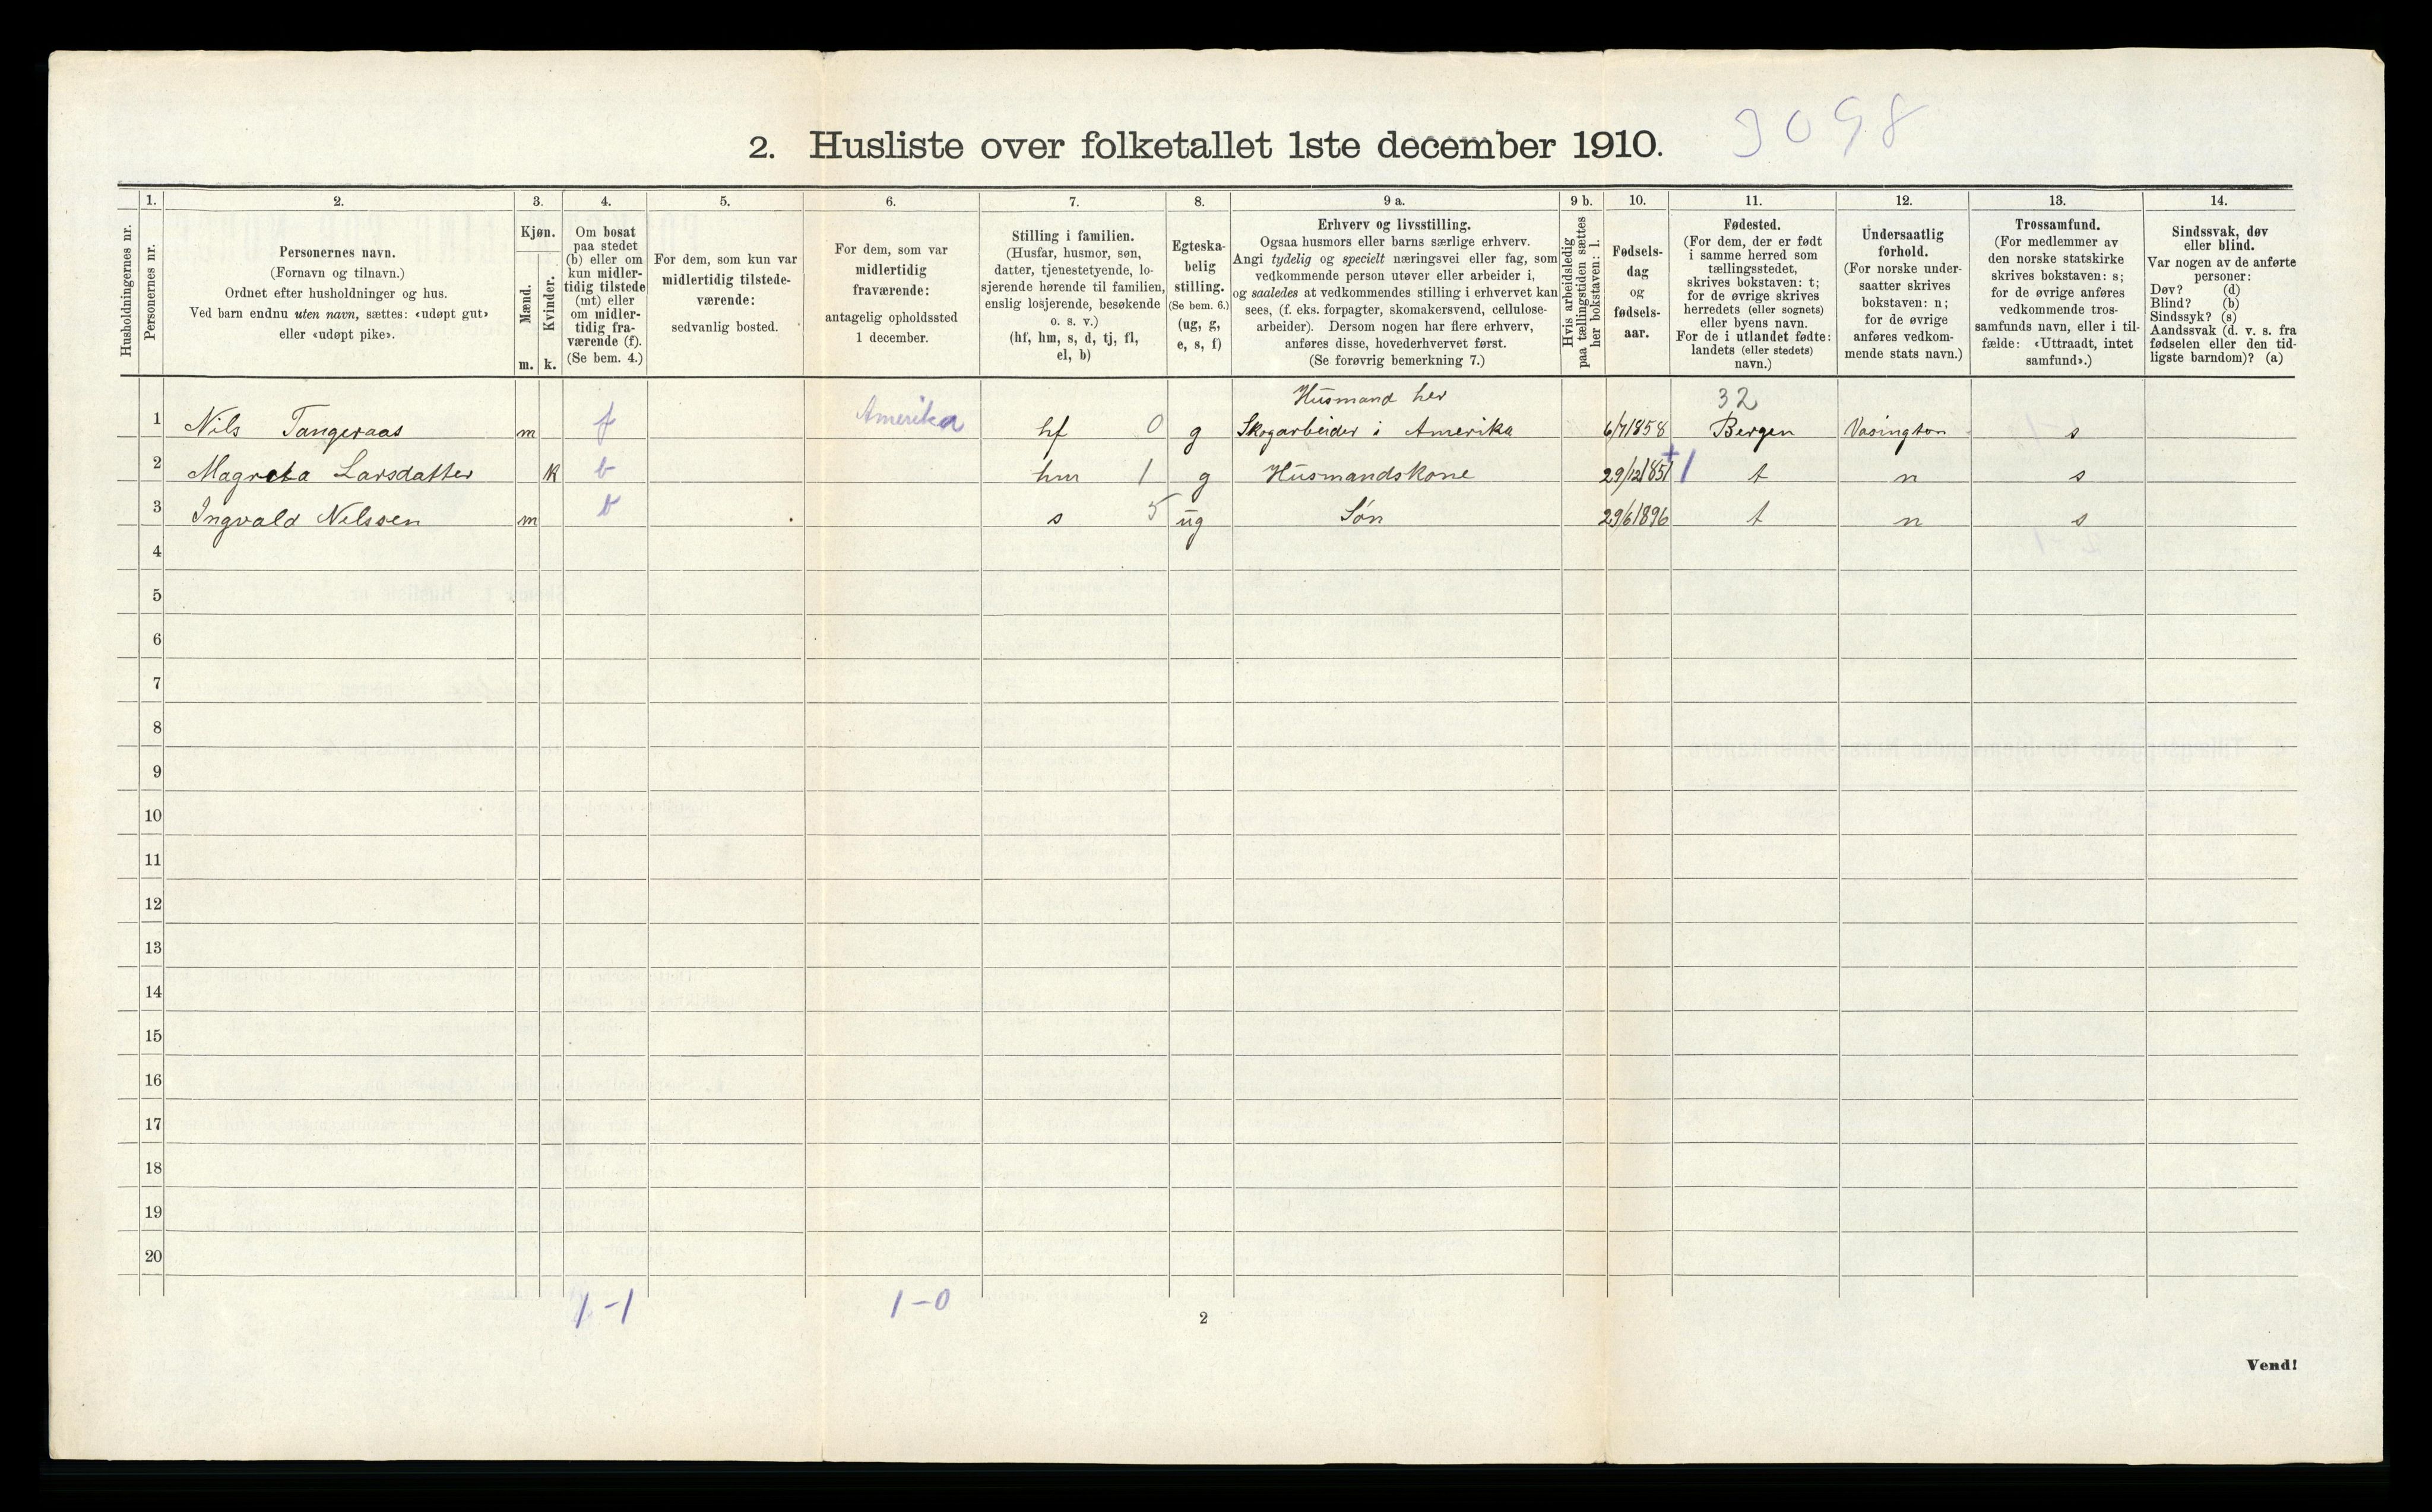 2. Husliste over folketallet 1ste december 1910.
3098
1.
2.
3.
4.
5.
6.
7.
8.
9 a.
9 b.
10.
11.
12.
13.
14.
Husholdningernes nr.
Personernes nr.
Personernes navn.
(Fornavn og tilnavn.)
Ordnet efter husholdninger og hus.
Ved barn endnu uten navn, sættes: «udøpt gut»
eller «udøpt pike».
Kjøn.
Mænd.
Kvinder.
m.
k.
Om bosat
paa stedet
(b) eller om
kun midler-
tidig tilstede
(mt) eller
om midler-
tidig fra-
værende (f).
(Se bem. 4.)
For dem, som kun var
midlertidig tilstede-
værende:
sedvanlig bosted.
For dem, som var
midlertidig
fraværende:
antagelig opholdssted
1 december.
Stilling i familien.
(Husfar, husmor, søn,
datter, tjenestetyende, lo-
sjerende hørende til familien,
enslig losjerende, besøkende
o. s. v.)
(hf, hm, s, d, tj, fl,
el, b)
Egteska-
belig
stilling.
(Se bem. 6.)
(ug, g,
e, s, f)
Erhverv og livsstilling.
Ogsaa husmors eller barns særlige erhverv.
Angi tydelig og specielt næringsvei eller fag, som
vedkommende person utøver eller arbeider i,
og saaledes at vedkommendes stilling i erhvervet kan
sees, (f. eks. forpagter, skomakersvend, cellulose-
arbeider). Dersom nogen har flere erhverv,
anføres disse, hovederhvervet først.
(Se forøvrig bemerkning 7.)
Hvis arbeidsledig
paa tællingstiden sættes
her bokstaven: l.
Fødsels-
dag
og
fødsels-
aar.
Fødested.
(For dem, der er født
i samme herred som
tællingsstedet,
skrives bokstaven: t;
for de øvrige skrives
herredets (eller sognets)
eller byens navn.
For de i utlandet fødte:
landets (eller stedets)
navn.)
Undersaatlig
forhold.
(For norske under-
saatter skrives
bokstaven: n;
for de øvrige
anføres vedkom-
mende stats navn.)
Trossamfund.
(For medlemmer av
den norske statskirke
skrives bokstaven: s;
for de øvrige anføres
vedkommende tros-
samfunds navn, eller i til-
fælde: «Uttraadt, intet
samfund».)
Sindssvak, døv
eller blind.
Var nogen av de anførte
personer:
Døv? (d)
Blind? (b)
Sindssyk? (s)
Aandssvak (d. v. s. fra
fødselen eller den tid-
ligste barndom)? (a)
Husmand her
32
1 Nils Tangeraas m f Amerika hf 0 g Skogarbeider i Amerika 6/7 1858 Bergen Vasington s
2 Magreta Larsdatter k b hm 1 g Husmandskone 29/12 1851 + 1 t n s
3 Ingvald Nilssen m b s 5 ug Søn 29/6 1896 t n s
4
5
6
7
8
9
10
11
12
13
14
15
16
17
18
19
20
1-1
1-0
2
Vend!